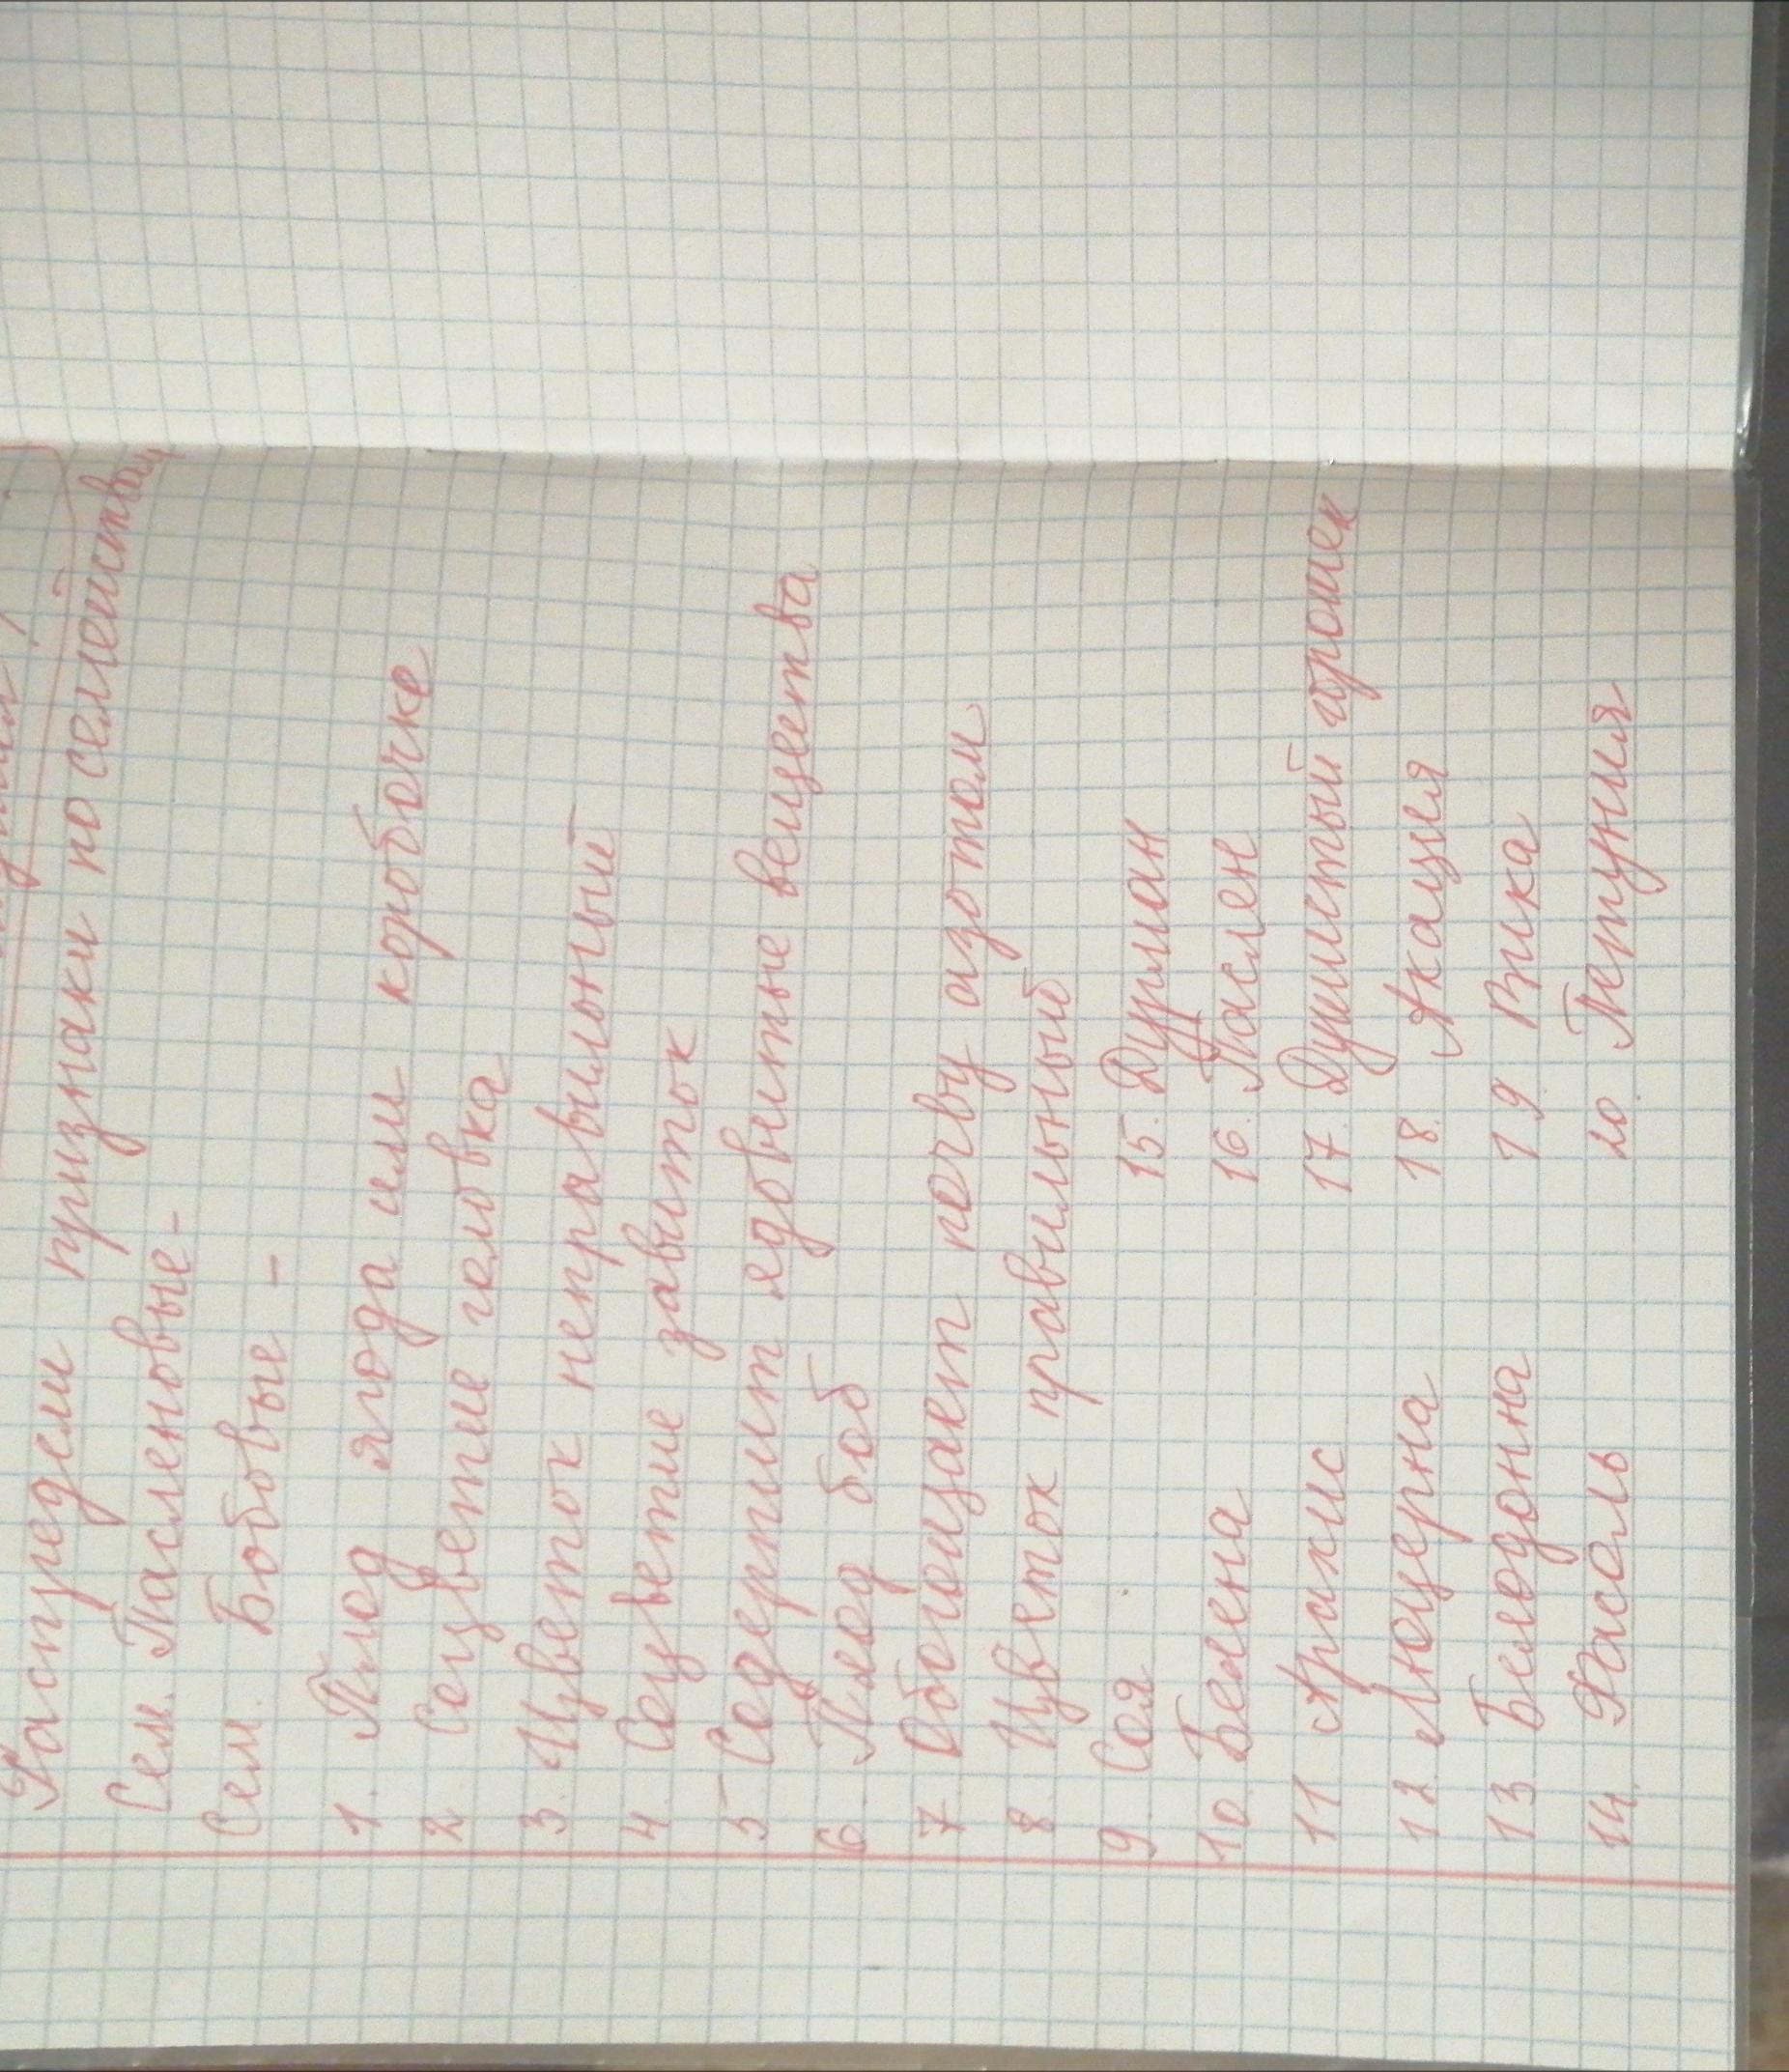 Распредели признаки по семействам
Сем. Пасленовые -
Сем. Бобовые -
1. Плод ягода или коробочке
2 Соцветие головка
3. Цветок неправильный
4. Соцветие завиток
5 Содержит ядовитые вещества
6. Плод боб
7. Обогощает почву азотом
8. Цветок правильный
9. Соя 15. Дурман
10. Белена 16. Паслен
11 Арахис 17. Душистый горошек
12. Люцерна 18. Акация
13. Беладонна 19. Вика
14. Фасоль 20. Петуния